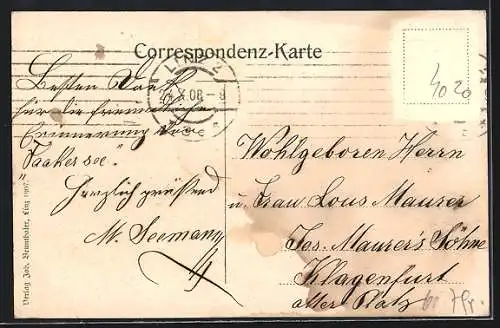 Correspondenz-Karte
LINZ 2
X.08-9
4020
Besten Dank
für die freundliche
Erinnerung vom
"Faakersee".
Herzlich grüssend
M. Seemann
Wohlgeboren Herrn
u. Frau Lous Maurer
Jos. Maurer's Söhne
Klagenfurt
alter Platz
Verlag Jos. Brunthaler, Linz 1907.